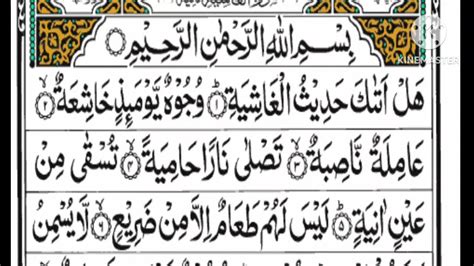 KINEMASTER
بِسْمِ اللهِ الرَّحْمٰنِ الرَّحِيْمِ
هَلْ اَتٰىكَ حَدِيْثُ الْغَاشِيَةِ ۝١ وُجُوْهٌ يَّوْمَىِٕذٍ خَاشِعَةٌ ۝٢
عَامِلَةٌ نَّاصِبَةٌ ۝٣ تَصْلٰى نَارًا حَامِيَةً ۝٤ تُسْقٰى مِنْ
عَيْنٍ اٰنِيَةٍ ۝٥ لَيْسَ لَهُمْ طَعَامٌ اِلَّا مِنْ ضَرِيْعٍ ۝٦ لَّا يُسْمِنُ